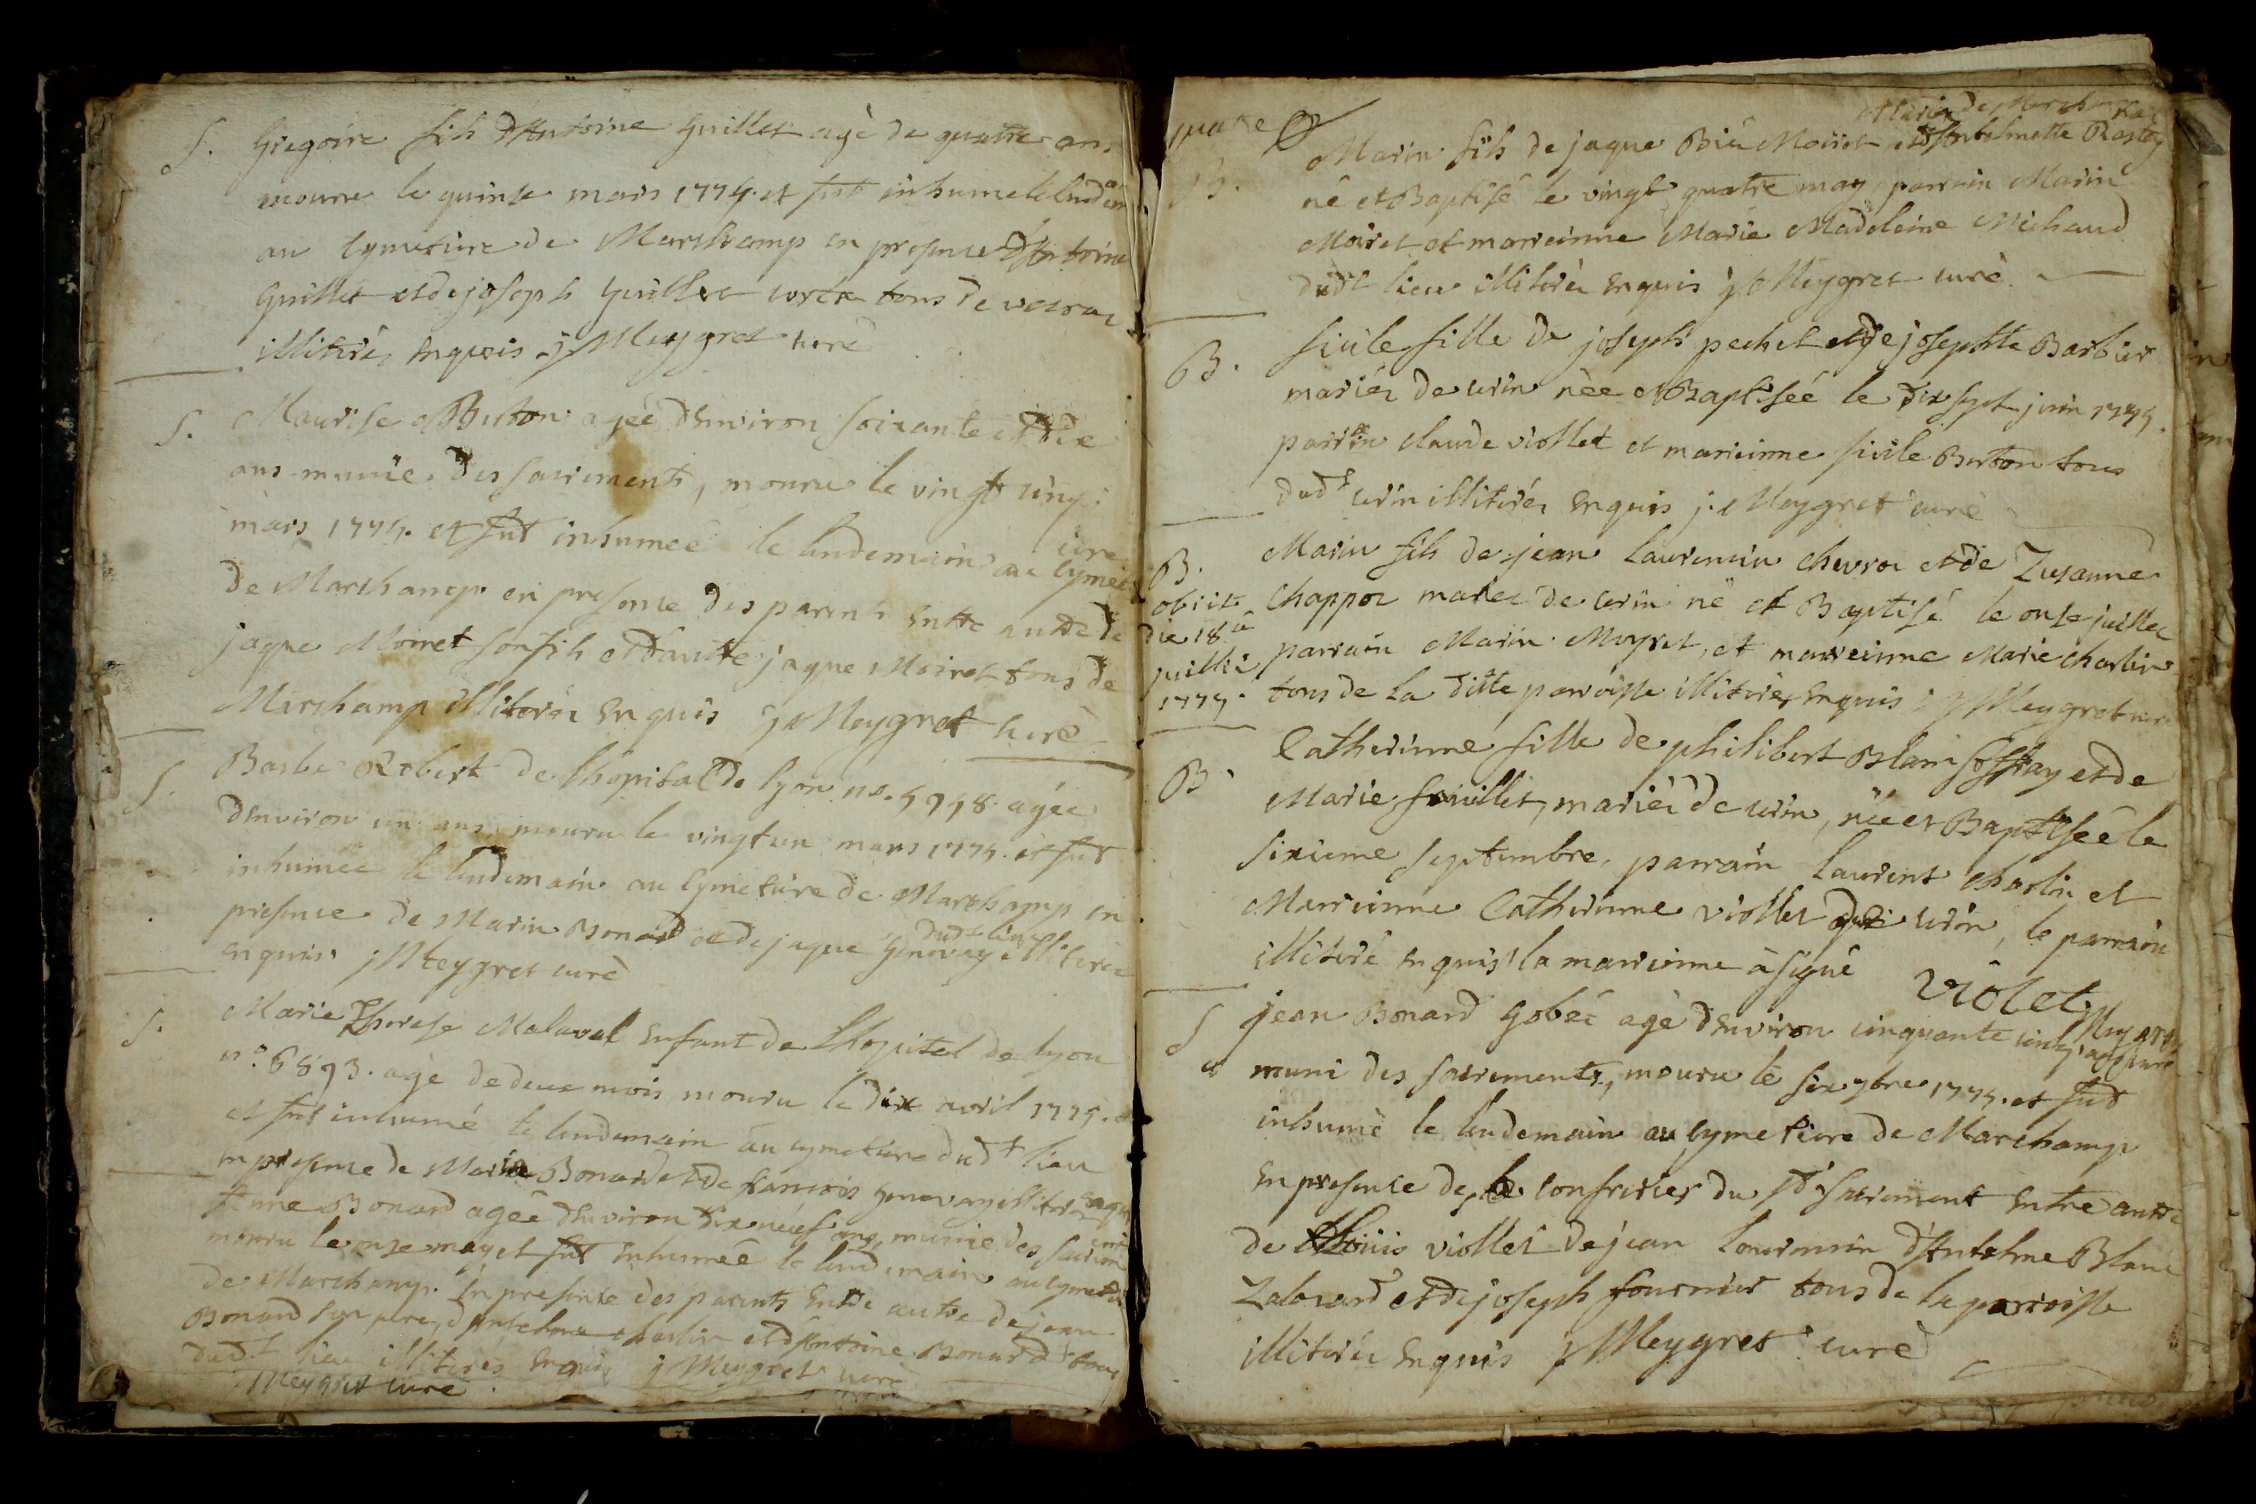 S. Gregoire fils d'Antoine Guillet agé de quatre ans
mouru le quinse mars 1775. et fut inhumé le lendem
au cymetiere de Marchamp en presence d'Antoine
Guillet et de joseph Guillet tous de
illiterés enquis j Meygret curé
S. Maurise Berton agéé d'Environ soixante et dix
ans munie des sacrements, mouru le vingt cinq
mars 1775. et fut inhumeé le lendemain au cymetiere
de Marchamp en presence des parents Entre autre de
jaque Moiret son fils et d'autre jaque Moiret tous de
Marchamp illiterés Enquis j Meygret curé
S. Barbe Robert de l'hopital de lyon no. 5918. agéé
d'Environ un ans mouru le vingt un mars 1775. et fut
inhuméé le lendemain au cymetiere de Marchamp en
presence de Marin Bonard et de jaque Genevey dudt lieu illiterés
enquis j Meygret curé
S. Marie Therese Malaval Enfant de l'hopital de lyon
n°. 6893. agé de deux mois mouru le dix avril 1775.
et fut inhumé le lendemain au cymetiere dudt lieu
en presence de Marin Bonard et de francois Genevay illiterés enquis
Anne Bonard agéé d'Environ dix neuf ans, munie des sacrem
mouru le onze may et fut Enhuméé le lendemain au cymetiere
de Marchamp. En presence des parents Entre autre de jean
Bonard son pere, d'Antelme charlin et d'Antoine Bonard tous
dudt lieu illiterés Enquis j Meygret curé
Meygret curé
quatre
Marin fils de jaque Moiret et d'Antelmette Rostey
B. né et Baptisé le vingt quatre may, parrain Marin
Moiret et marreinne Marie Madeleine Michaud
dudt lieu illiterés enquis j Meygret curé
B. sicile fille de joseph pechet et de josephte Barbier
mariés de cerin néé et Baptiséé le dix sept juin 1775.
parrin claude viollet et marreinne sicile Berton tous
dudt cerin illiterés enquis j. Meygret curé
B. Marin fils de jean laurencin chevroz et de Zusanne
obiit Chappoz mariés de cerin né et Baptisé le onse juillet
die 18.a parrain Marin Moyret, et marreinne Marie Charlin
juillii tous de la ditte parroisse illiterés enquis j Meygret curé
1775.
B. Catherinne fille de philibert Blanc et de
Marie , mariés de cerin, néé et Baptiséé le
sixieme septembre, parrain laurent charlin et
Marreinne Catherinne viollet de cerin, le parrain
illiteré enquis la marreinne à signé violet Meygret curé
S jean Bonard Gobéé agé d'Environ cinquante cinq ans
muni des sacrements, mouru le six 7bre 1775. et fut
inhumé le lendemain au cymetiere de Marchamp
En presence de confreries du st sacrement Entre autre
de Louis viollet de jean lourencin d'Antelme Blanc
Zaloward et de joseph fournier tous de la parroisse
illiterés Enquis j Meygret curé